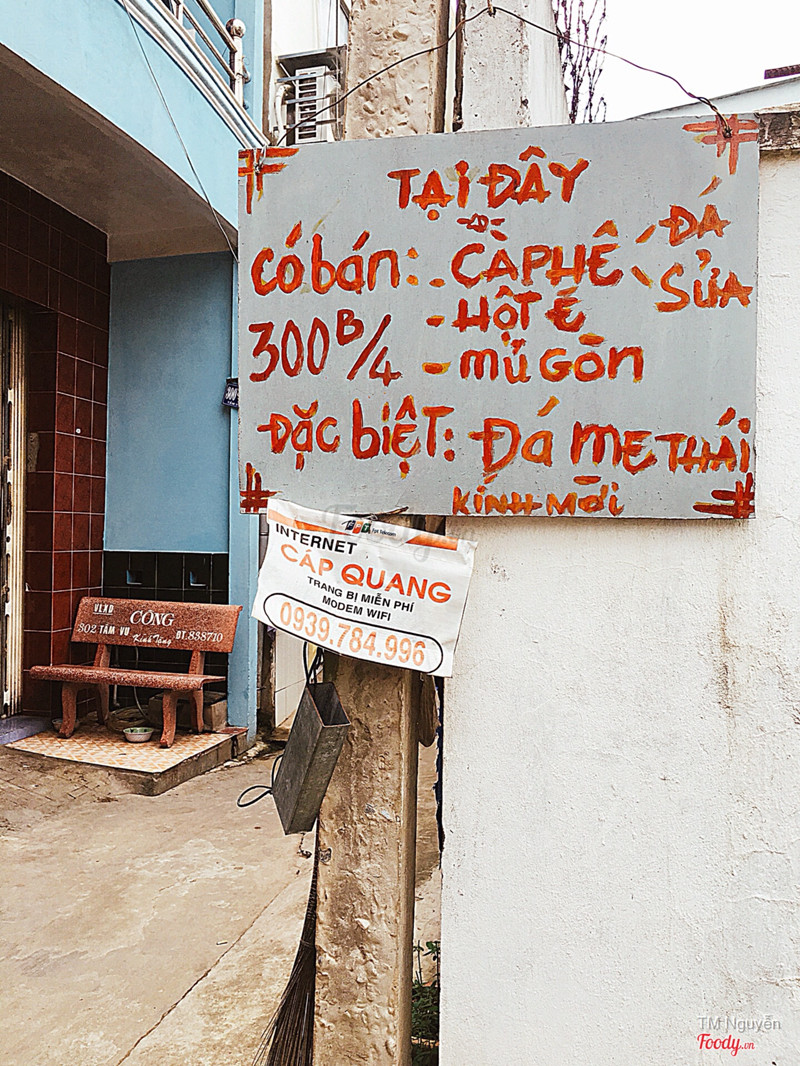 TẠI ĐÂY
Có bán: - CÀ PHÊ ĐÁ
SỬA
300B/4 - HỘT É
- MỦ GÒN
ĐẶC BIỆT: ĐÁ ME THÁI
KÍNH MỜI
FPT Telecom
INTERNET
CÁP QUANG
TRANG BỊ MIỄN PHÍ
MODEM WIFI
0939.784.996
VLXD
CÔNG
302 TẦM VU Kính Tặng ĐT.838710
TM Nguyễn
Foody.vn